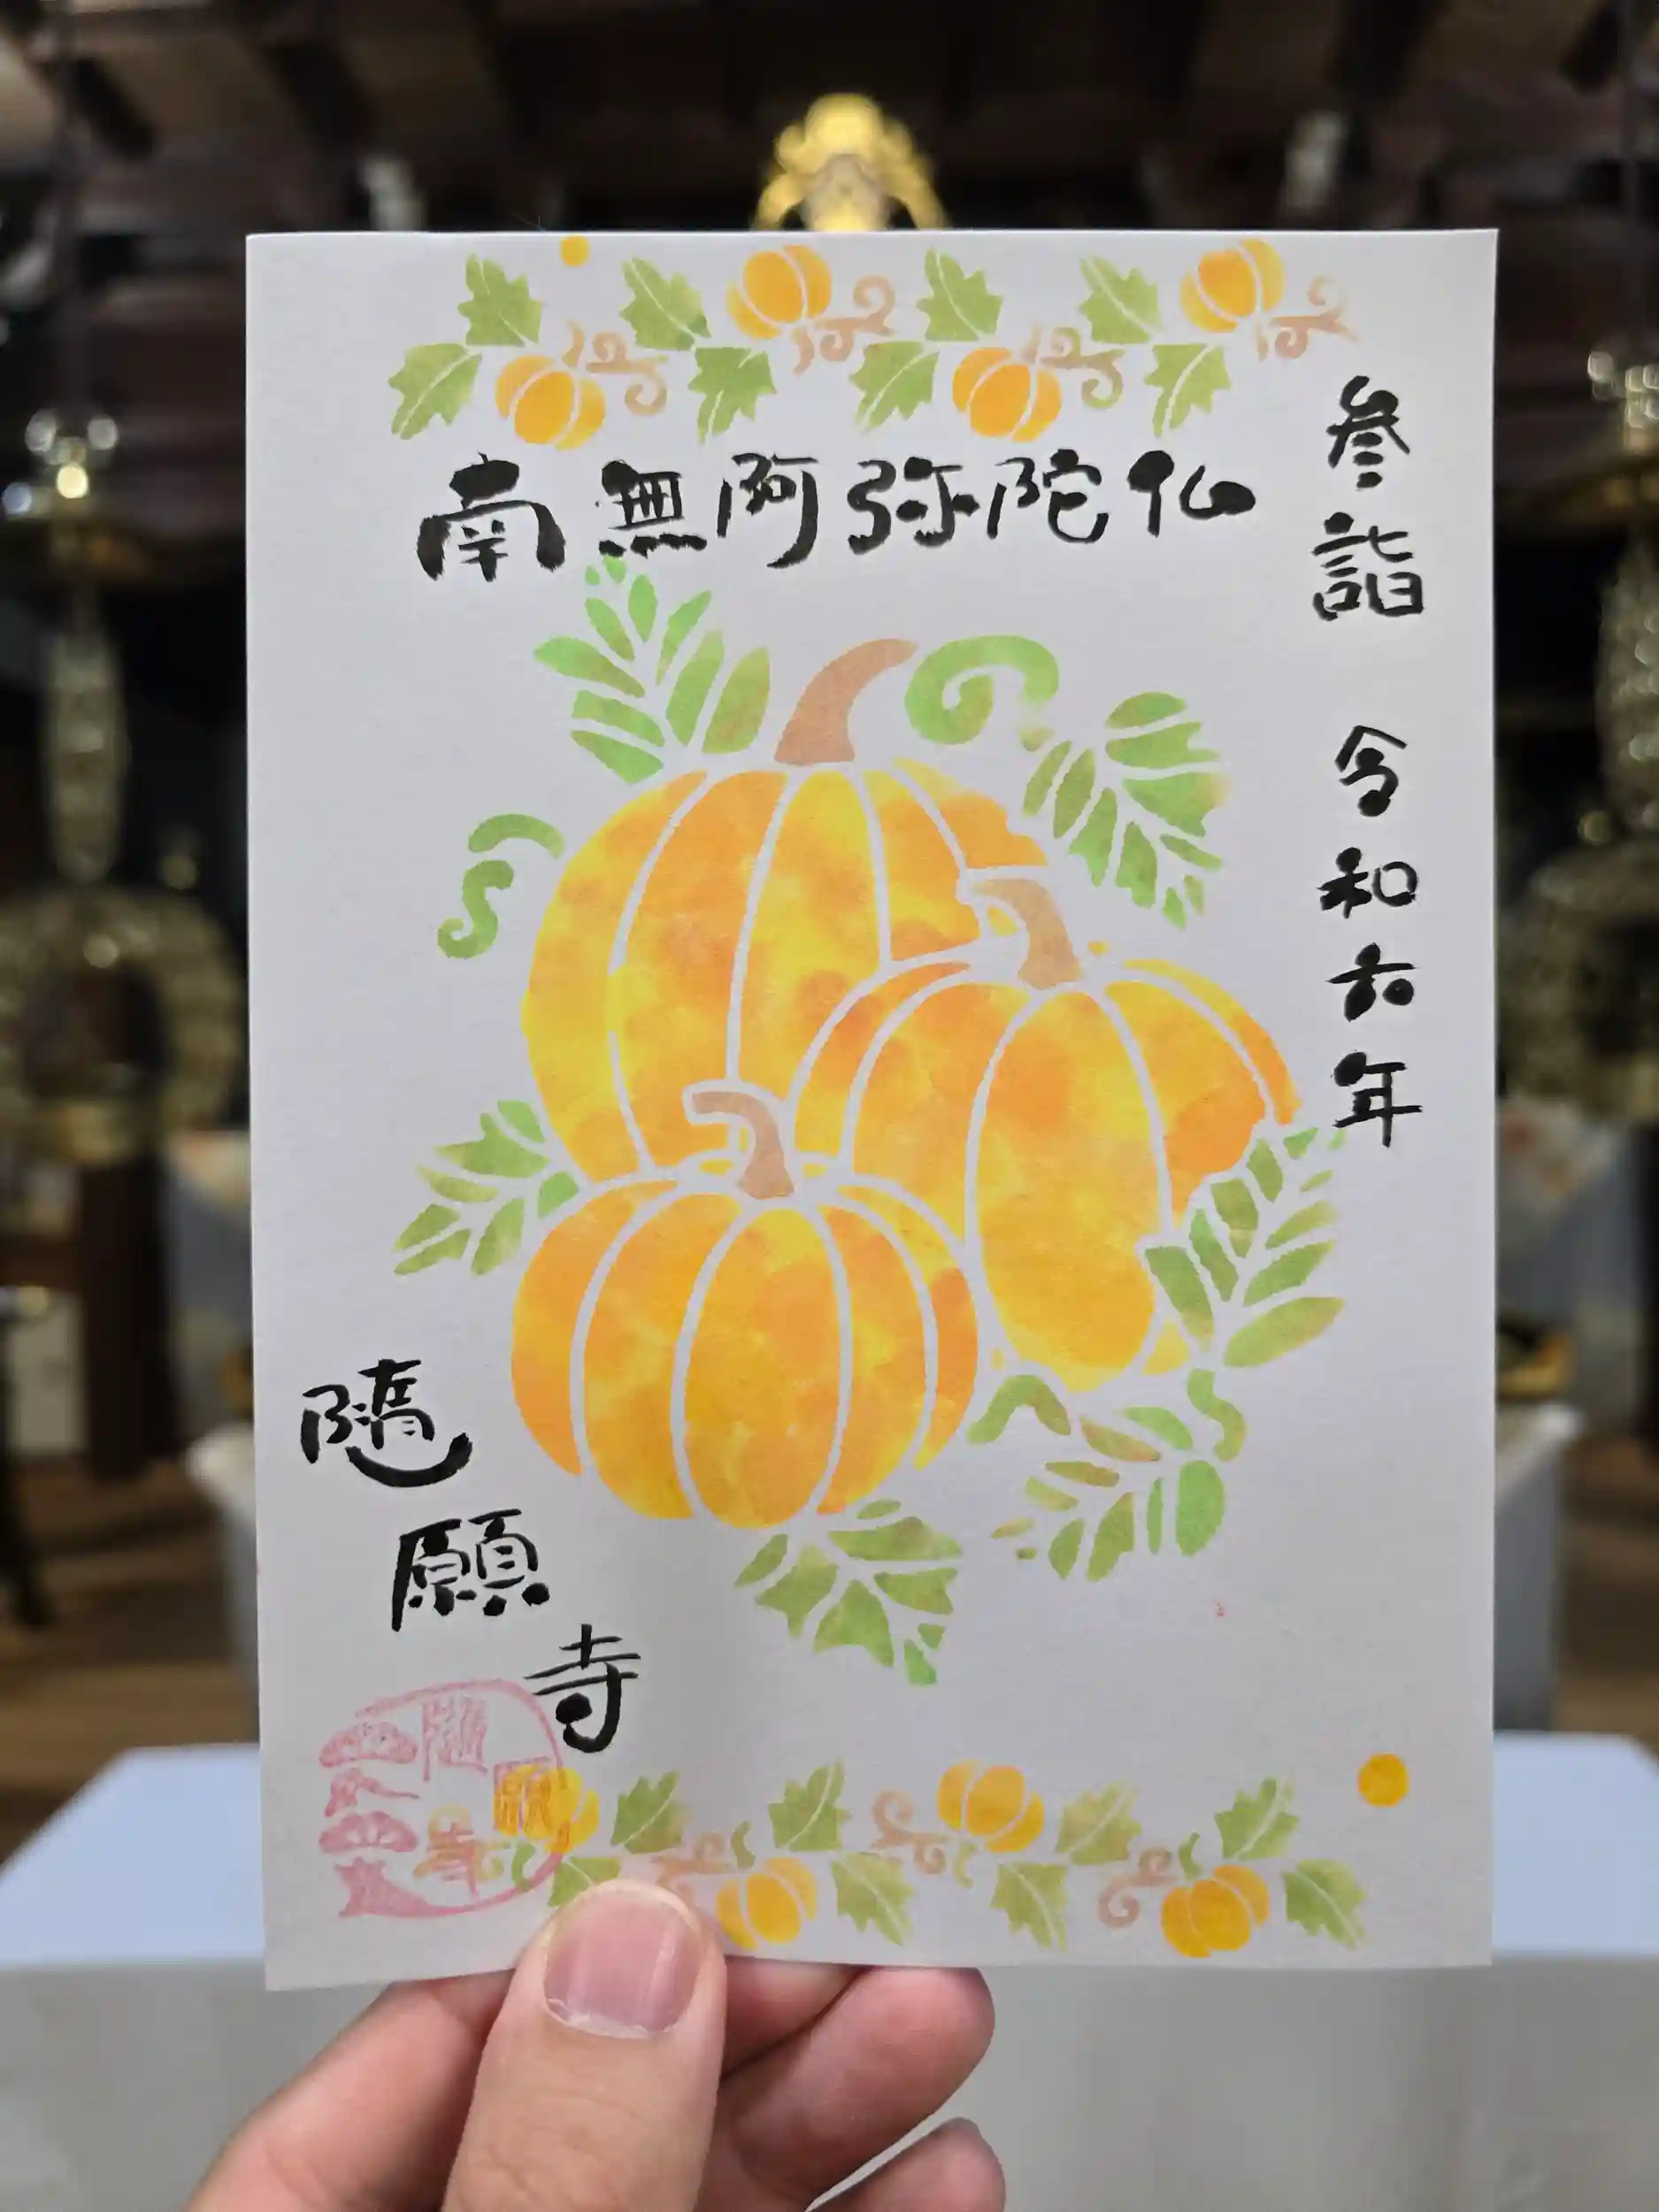 南無阿弥陀仏
参詣 令和六年
隨願寺
隨願寺